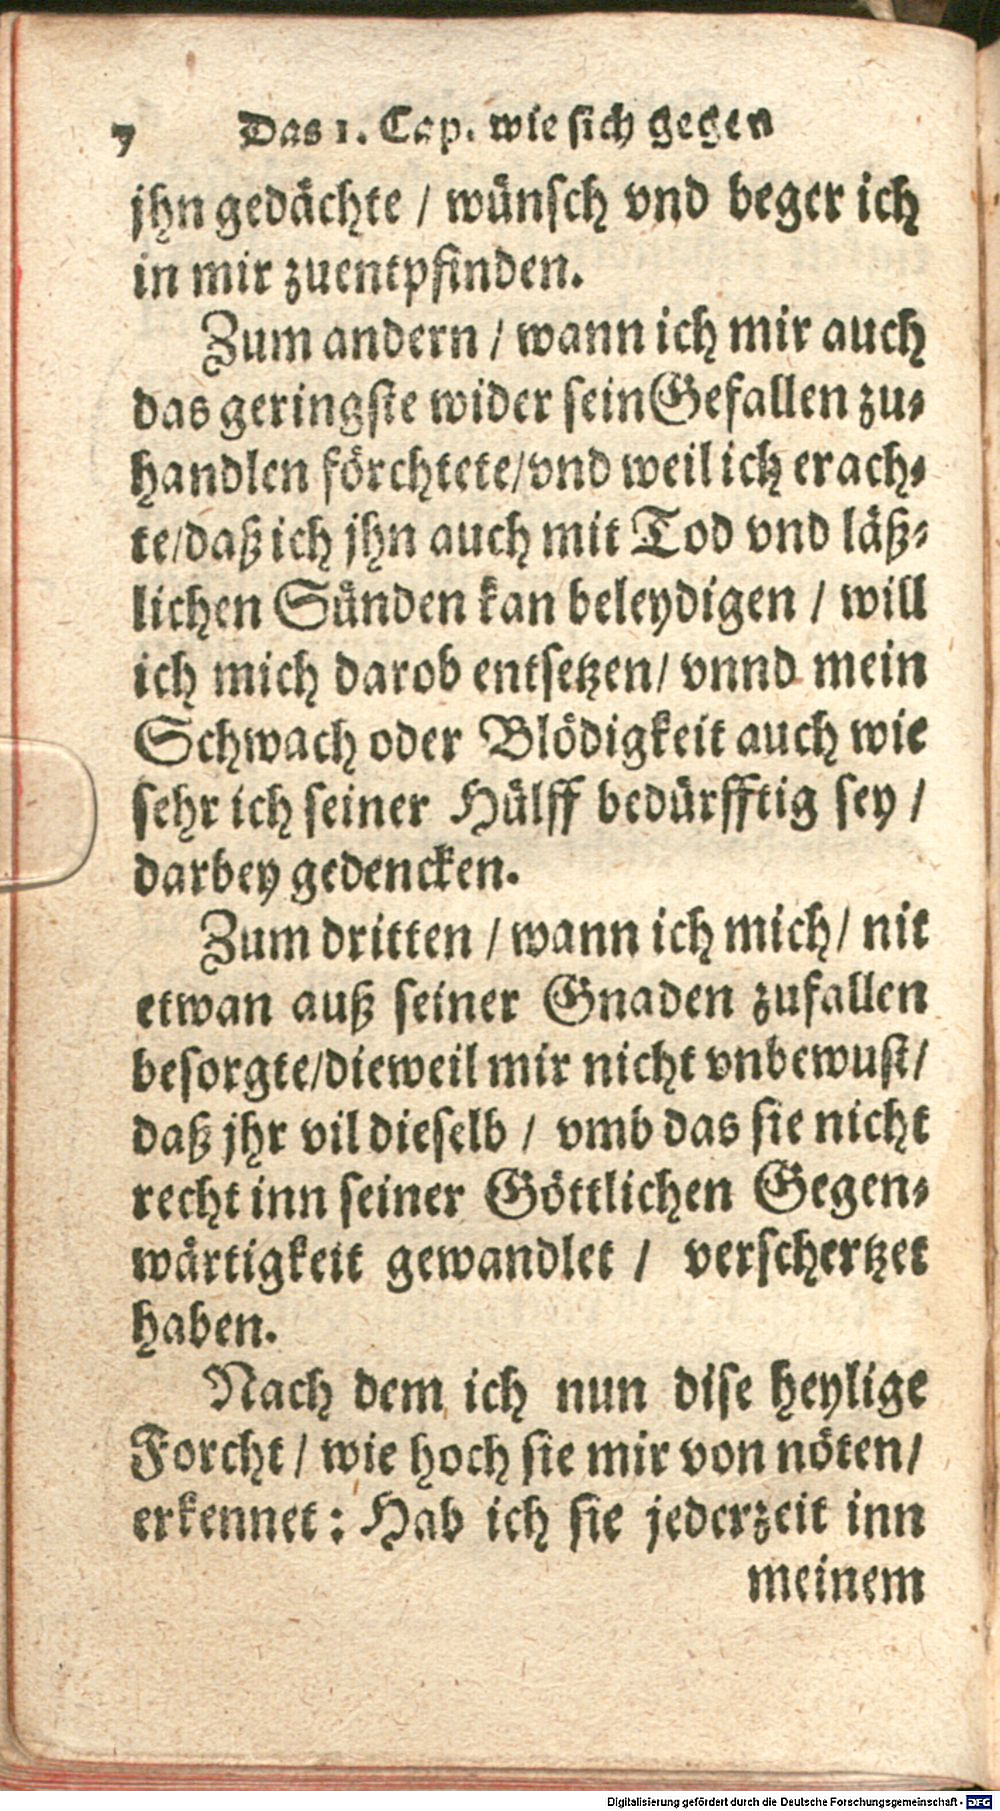 7 Das 1. Cap. wie sich gegen
jhn gedächte / wünsch vnd beger ich
in mir zuentpfinden.
Zum andern / wann ich mir auch
das geringste wider sein Gefallen zu⸗
handlen förchtete / vnd weil ich erach⸗
te / daß ich jhn auch mit Tod vnd läß⸗
lichen Sünden kan beleydigen / will
ich mich darob entsetzen / vnnd mein
Schwach oder Blödigkeit auch wie
sehr ich seiner Hülff bedürfftig sey /
darbey gedencken.
Zum dritten / wann ich mich / nit
etwan auß seiner Gnaden zufallen
besorgte / dieweil mir nicht vnbewust /
daß jhr vil dieselb / vmb das sie nicht
recht inn seiner Göttlichen Gegen⸗
wärtigkeit gewandlet / verschertzet
haben.
Nach dem ich nun dise heylige
Forcht / wie hoch sie mir von nöten /
erkennet: Hab ich sie jederzeit inn
meinem
Digitalisierung gefördert durch die Deutsche Forschungsgemeinschaft - DFG